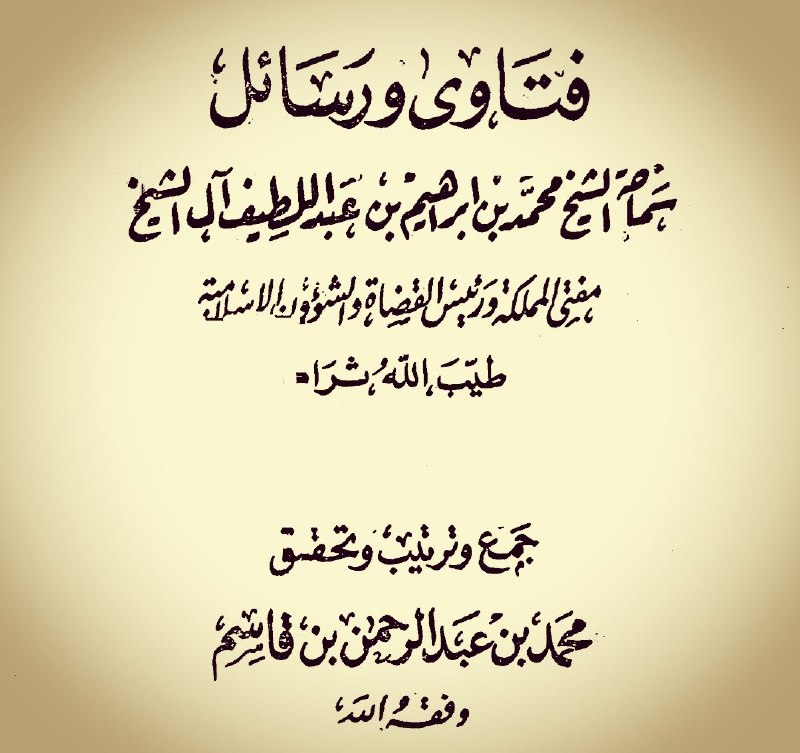 فتاوى ورسائل
سماحة الشيخ محمد بن ابراهيم بن عبد اللطيف آل الشيخ
مفتي المملكة ورئيس القضاة والشؤون الاسلامية
طيب الله ثراه
جمع وترتيب وتحقيق
محمد بن عبد الرحمن بن قاسم
وفقه الله